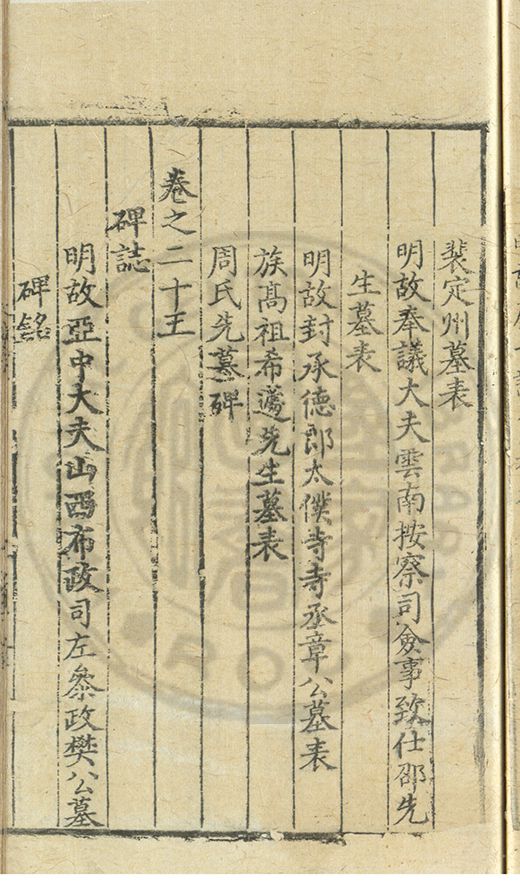 裴定州墓表
明故奉議大夫雲南按察司僉事致仕邵先
生墓表
明故封承德郎太僕寺寺丞章公墓表
族髙祖希蘧先生墓表
周氏先墓碑
卷之二十王
碑誌
明故亞中大夫山西布政司左叅政樊公墓
碑銘